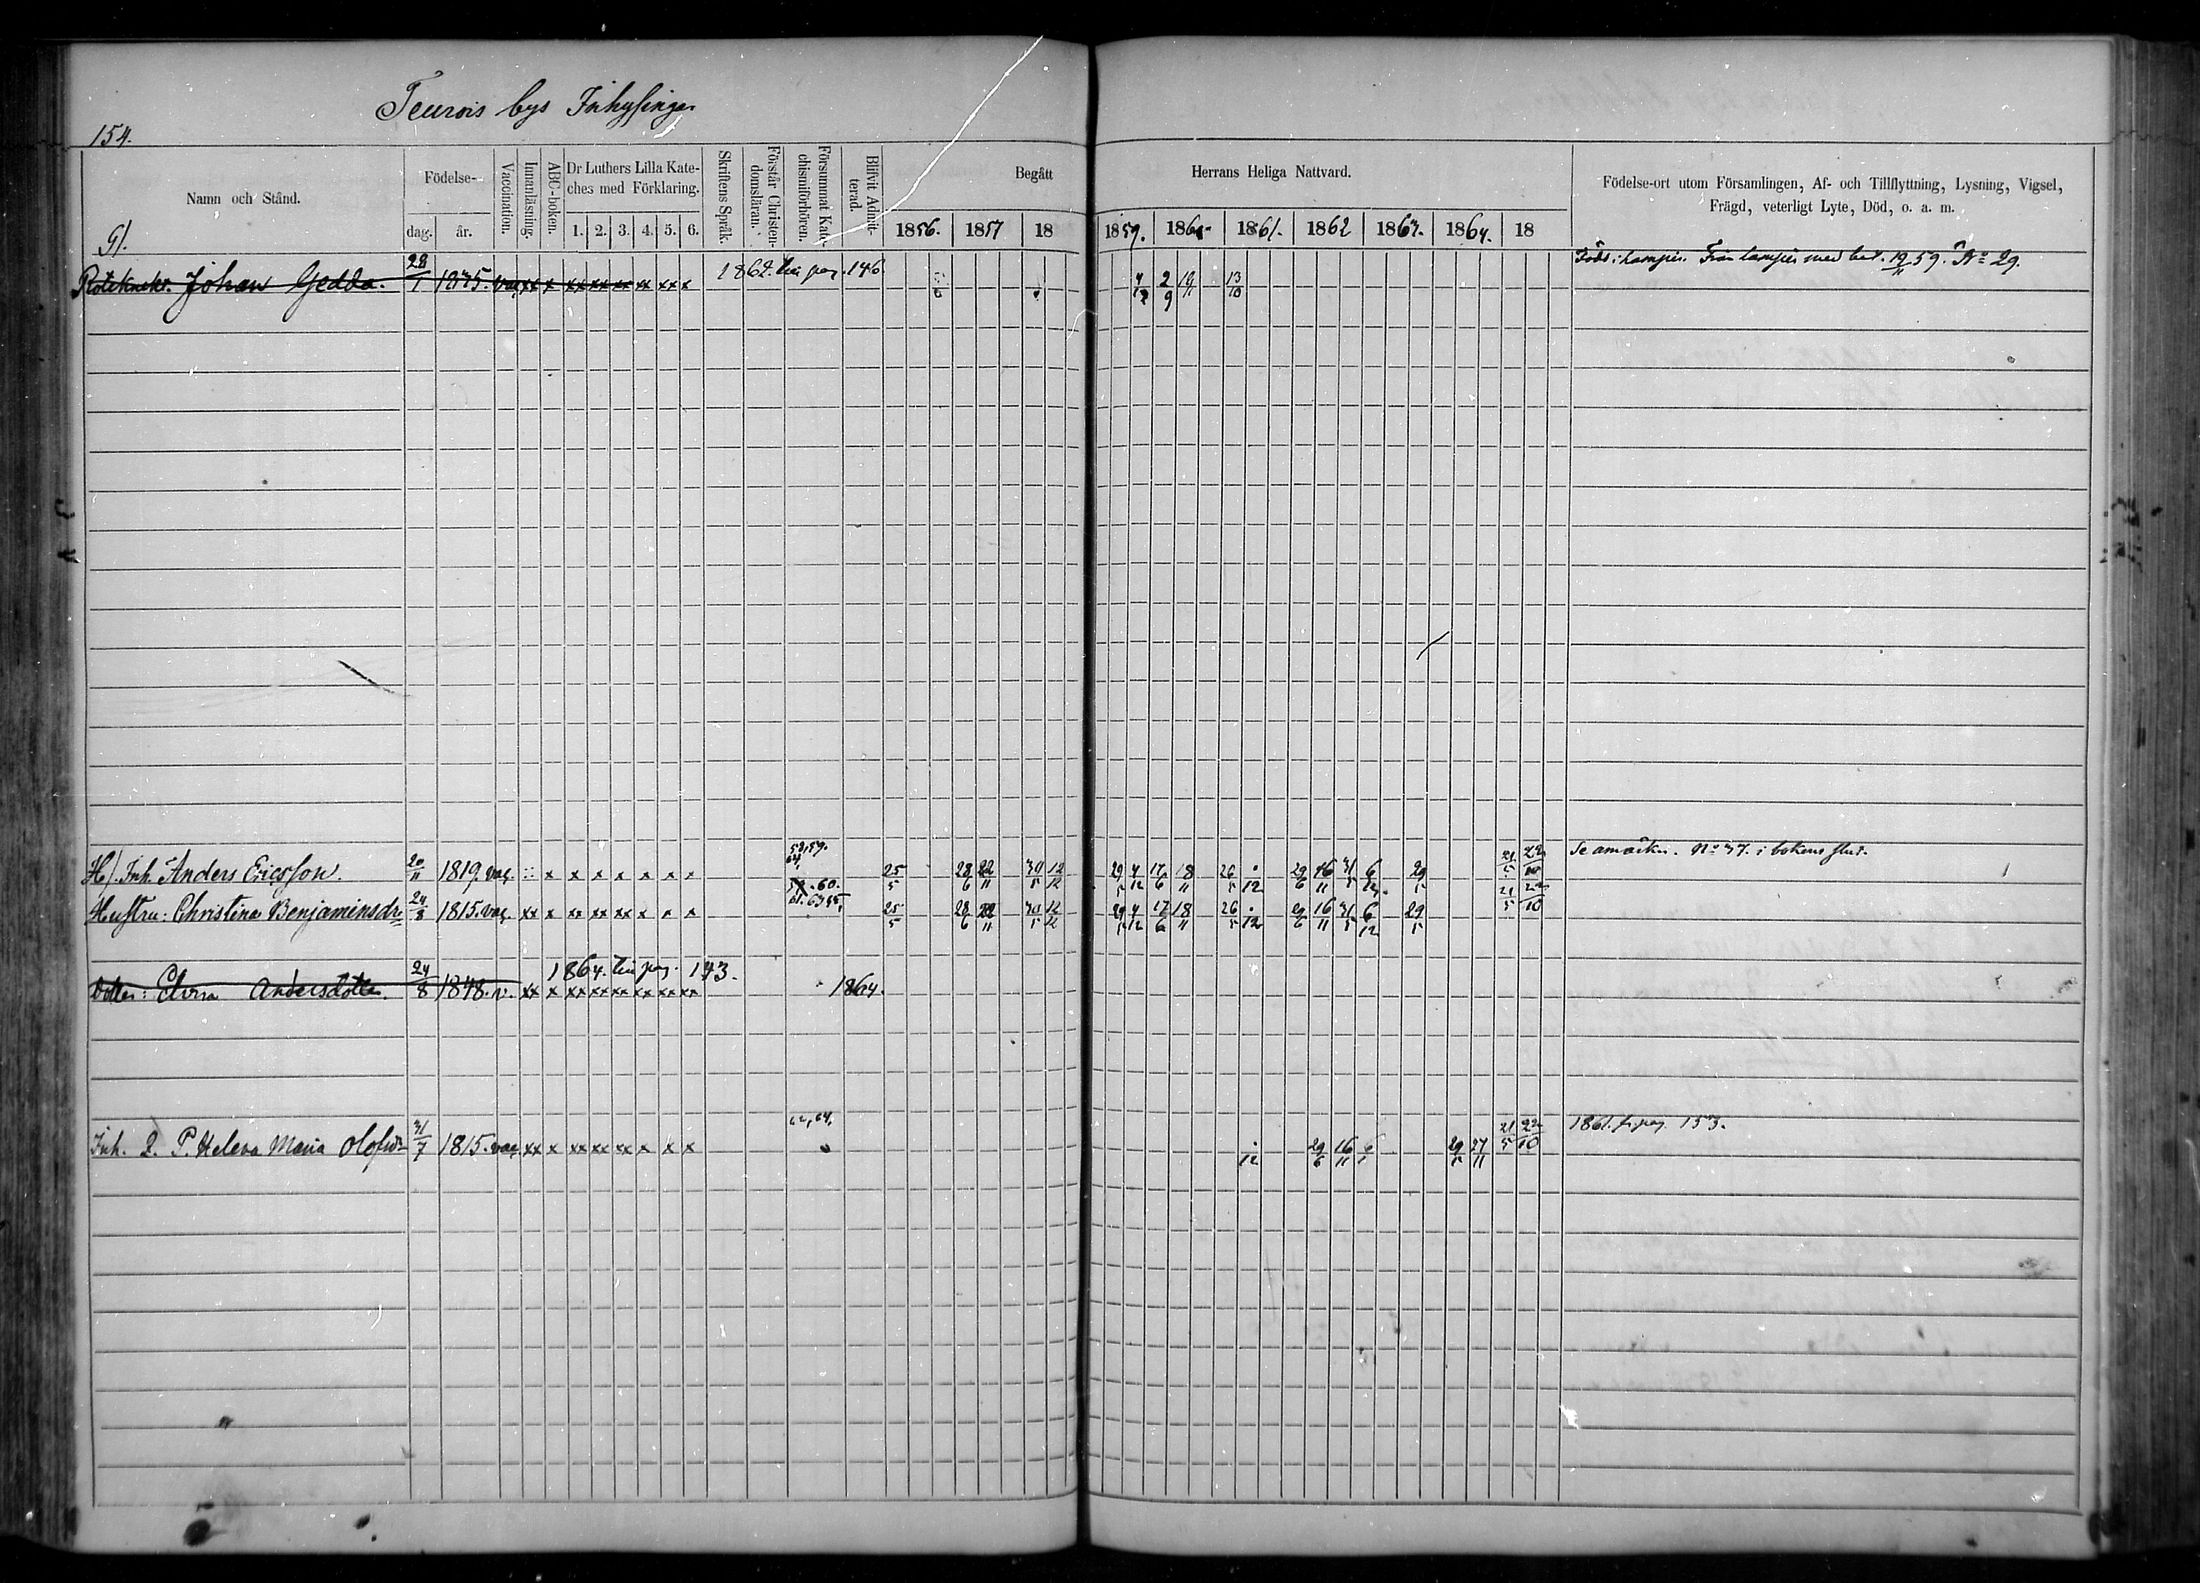 Teurois bys Inhysingar
154.
Namn och Stånd.
Födelse-
dag.
år.
Vaccination.
Innanläsning.
ABC-boken.
Dr Luthers Lilla Kate-
ches med Förklaring.
1. 2. 3. 4. 5. 6.
Skriftens Språk.
Förstår Christen-
domsläran.
Försummat Kate-
chismiförhören.
Blifvit Admit-
terad.
Begått
1856. 1857 18
Herrans Heliga Nattvard.
1859. 1860. 1861. 1862 1863. 1864. 18
Födelse-ort utom Församlingen, Af- och Tillflyttning, Lysning, Vigsel,
Frägd, veterligt Lyte, Död, o. a. m.
G/.
Johan Gedda. 28/1 1835. vac. xx x xx xx xx xx xx x 1862. till pag. 146. 4/12 2/9 19/11 13/10 Född i Lampis. Från Lampis med bet. 19/11 59. No 29.
H/. Inh. Anders Ericsson. 20/11 1819. vac. x x x x x x x 58, 59. 64, 25/5 28/6 22/11 30/5 12/12 29/5 4/12 17/6 18/11 26/5 /12 29/6 16/11 31/5 6/12 29/5 21/5 22/10 Se anmärkn. No 37. i bokens slut.
Hustru: Christina Benjaminsdr 24/3 1815. vac. xx x xx xx xx x x x 60. 61. 63 25/5 28/6 22/11 30/5 12/12 29/5 4/12 17/6 18/11 26/5 /12 29/6 16/11 31/5 6/12 29/5 21/5 22/10
1864. till pag. 143.
Dotter: Elvira Andersdotter. 24/8 1848. v. xx x xx xx xx xx xx xx 1864.
Inh. Q. P. Helena Maria Olofsdr 31/7 1815. vac. xx x xx xx xx x x x 62, 64, /12 29/6 16/11 29/5 27/11 21/5 22/10 1861. fr. pag. 153.